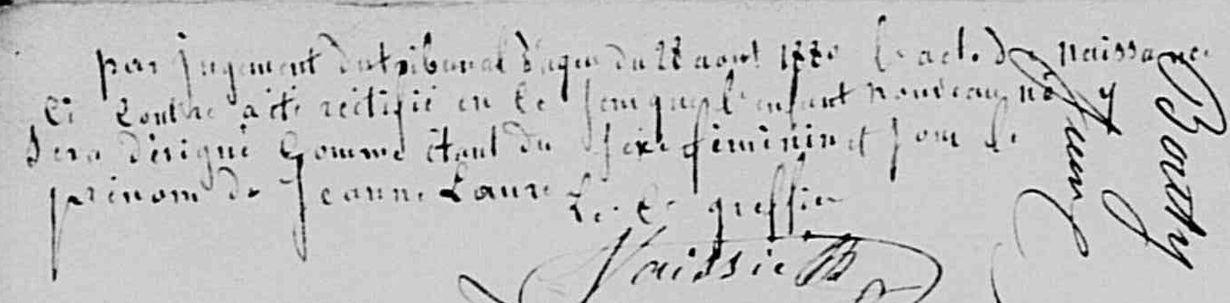 par jugement du tribunal d'agen du 28 aout 1880 l'acte de naissance
ci contre a été rectifié en ce sens que l'enfant nouveau né y
sera désigné comme étant du sexe féminin et sous le
prénom de Jeanne Laure
Le Cs greffier
Vaissie